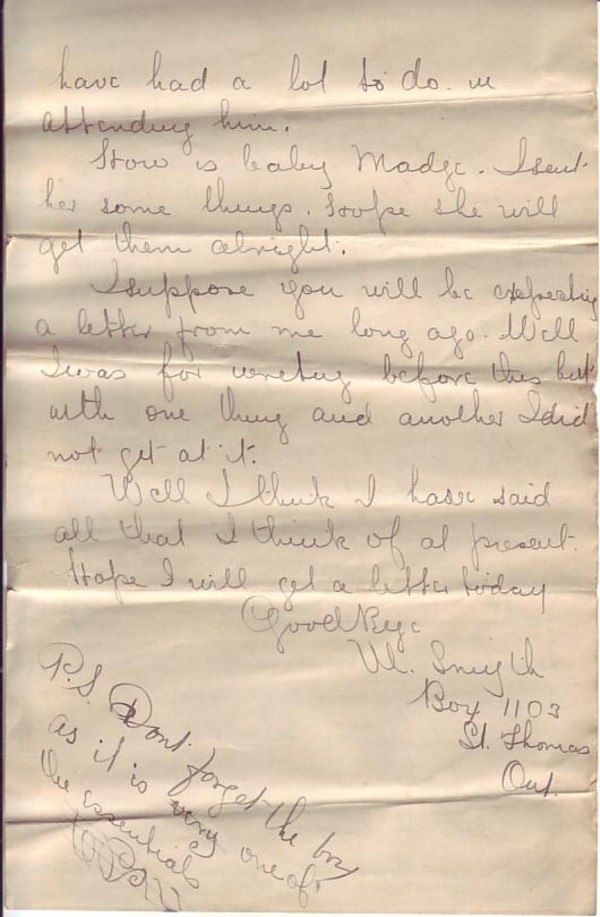 have had a lot to do in
attending him.
How is baby Madge. I sent
her some things. Hope she will
get them alright.
I suppose you will be expecting
a letter from me long ago. Well
I was for writing before this but
with one thing and another I did
not get at it.
Well I think I have said
all that I think of at present.
Hope I will get a letter today
Goodbye
W. Smyth
Box 1103
St. Thomas
Ont.
P.S. Dont forget the box
as it is very one of
the essentials